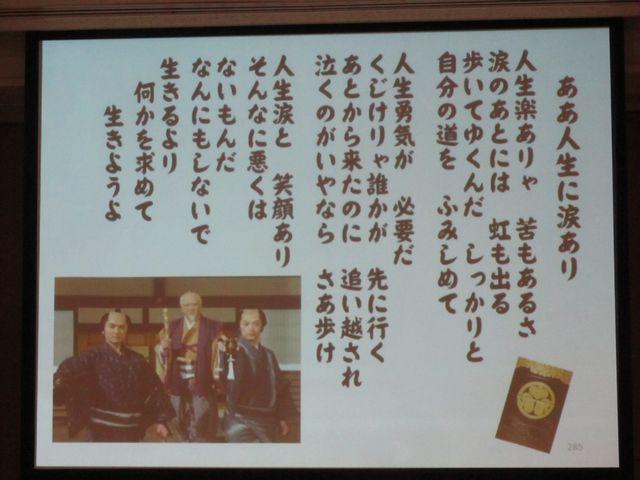 ああ人生に涙あり
人生楽ありゃ　苦もあるさ
涙のあとには　虹も出る
歩いてゆくんだ　しっかりと
自分の道を　ふみしめて
人生勇気が　必要だ
くじけりゃ誰かが　先に行く
あとから来たのに　追い越され
泣くのがいやなら　さあ歩け
人生涙と　笑顔あり
そんなに悪くは
ないもんだ
なんにもしないで
生きるより
何かを求めて
生きようよ
285